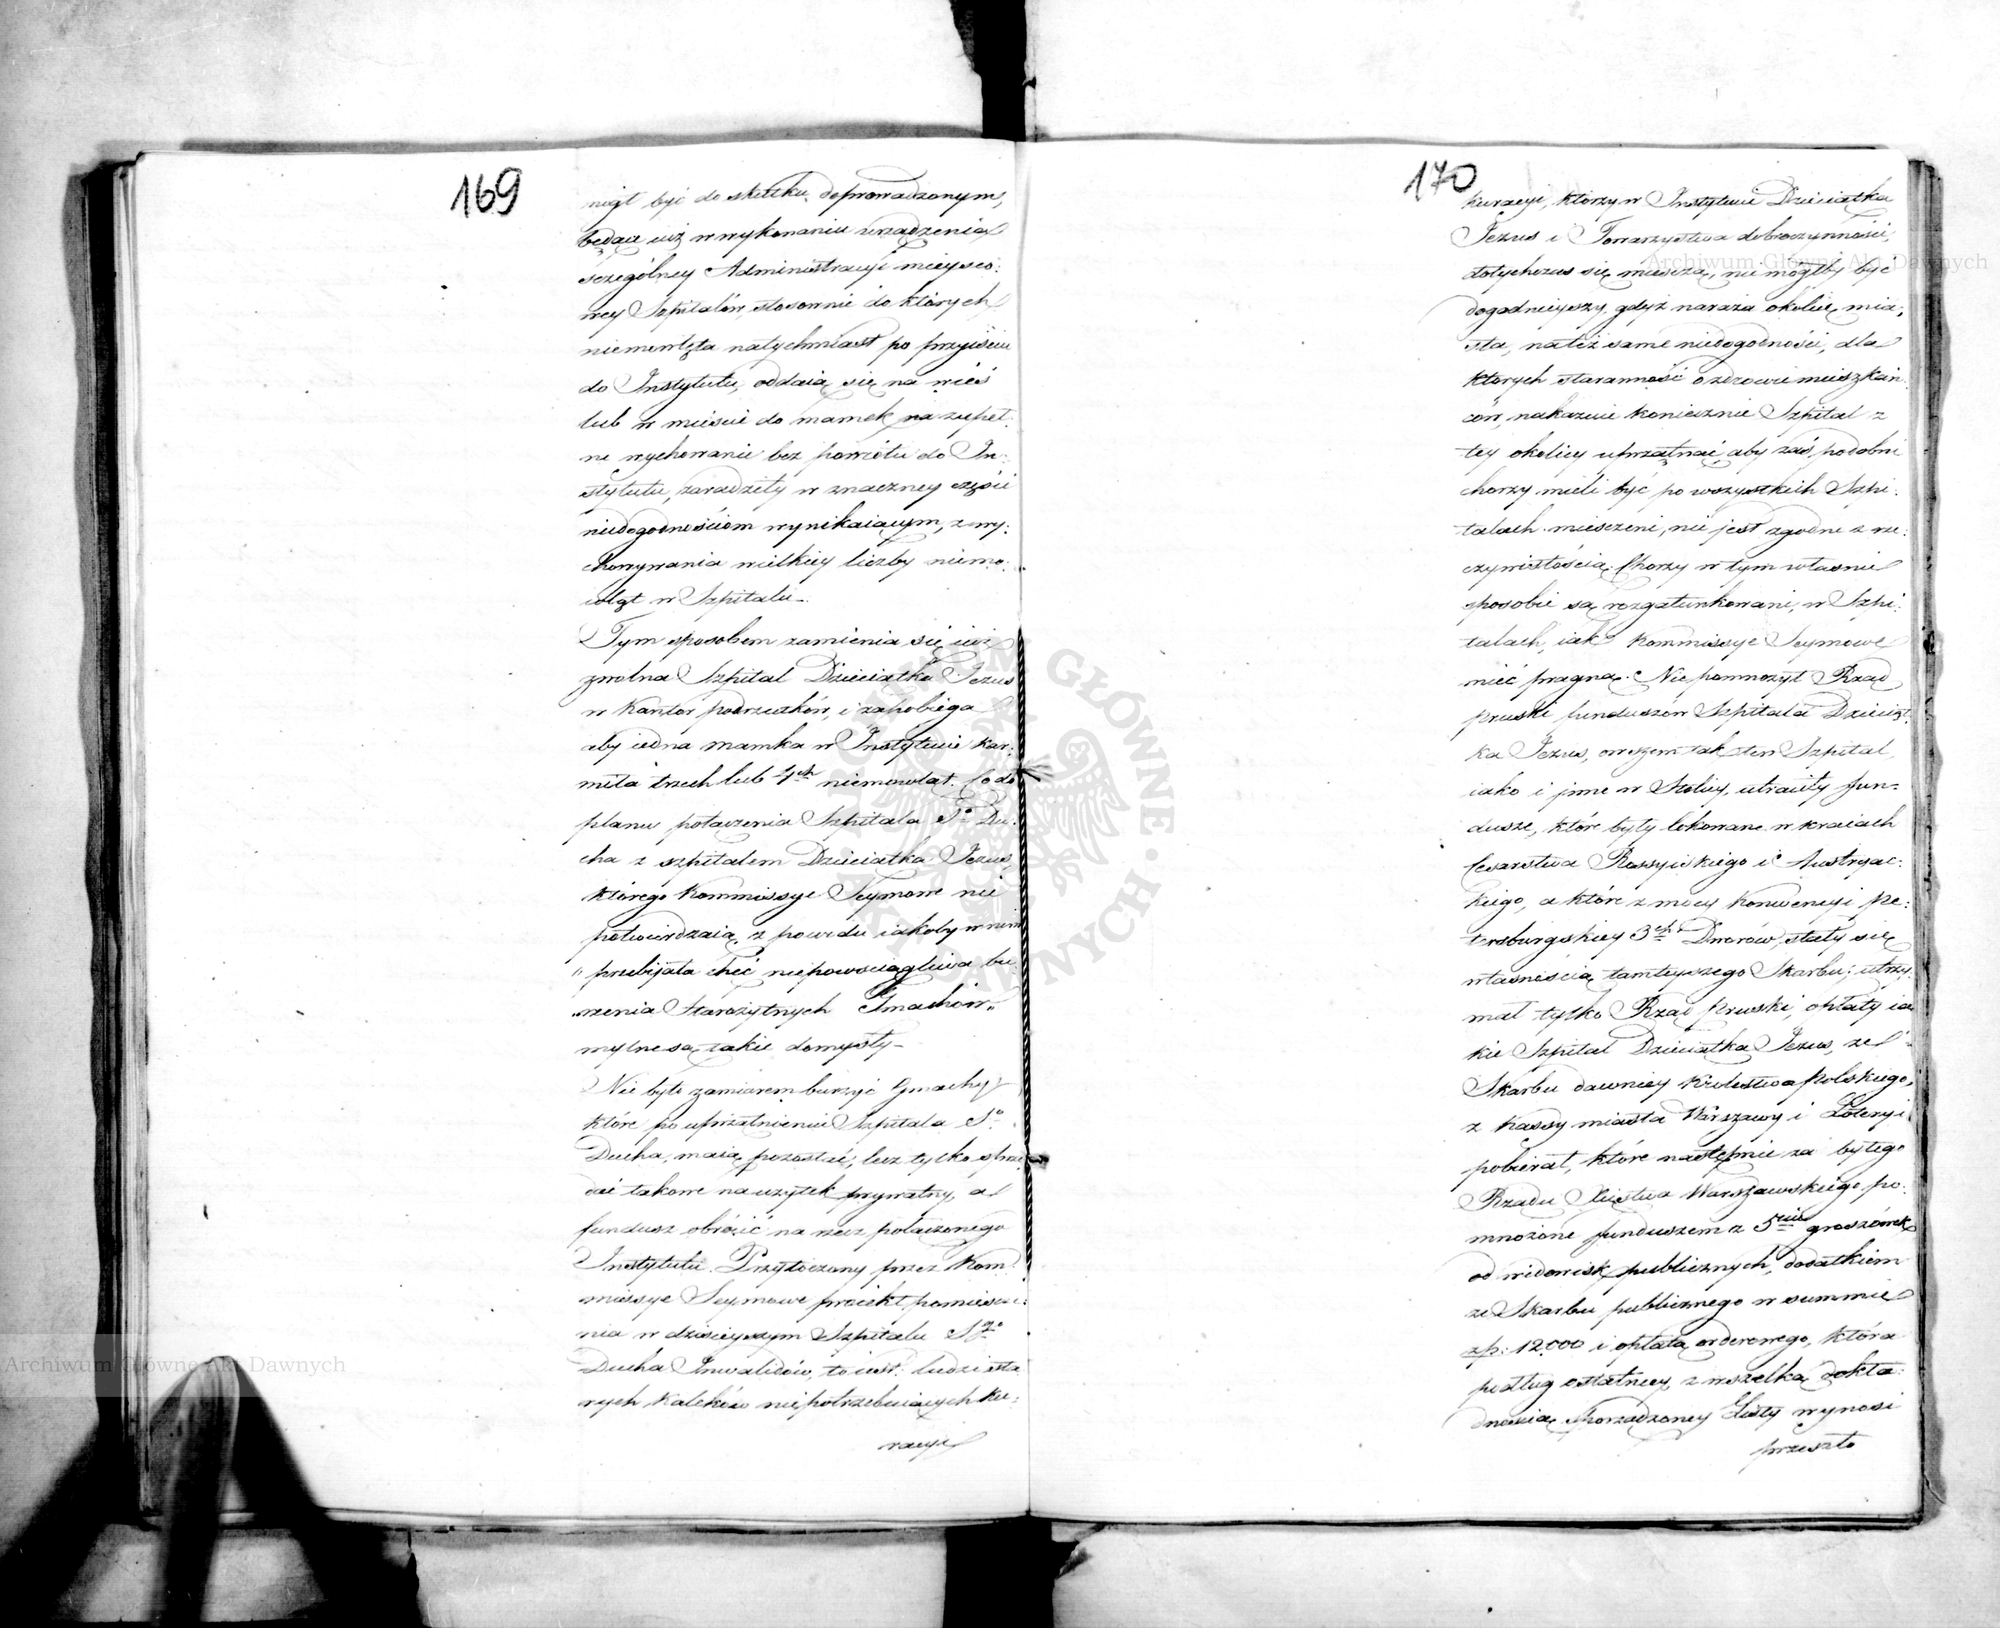 169
mógł być do skutku doprowadzonym,
będące już w wykonaniu urządzenia
szczególney Administracyi mieysco:
wey Szpitalów, stosownie do których
niemowlęta natychmiast po przyjściu
do Instytutu, oddaią się na wieś
lub w mieście do mamek na zupeł:
ne wychowanie bez powrotu do In:
stytutu, zaradziły w znaczney części
niedogodnościom wynikaiącym, z wy:
chowywania wielkiey liczby niemo:
wląt w Szpitalu.
Tym sposobem zamienia się już
zwolna Szpital Dzieciątka Jezus
w Kantor podrzutków, i zapobiega
aby iedna mamka w Instytucie kar:
miła trzech lub 4ch niemowląt. Co do
planu połączenia Szpitala So Du:
cha z szpitalem Dzieciątka Jezus,
którego Kommissye Seymowe nie
potwierdzaią, z powodu iakoby w nim
„przebijała chęć niepowściągliwa bu:
„rzenia starożytnych Gmachów„
mylne są takie domysły –
Nie było zamiarem burzyć Gmachy
które po uprzątnieniu Szpitala So
Ducha, maią pozostać; lecz tylko sprze:
dać takowe na użytek prywatny, a
fundusz obrócić na rzecz połączonego
Instytutu. Przytoczony przez Kom:
missye Seymowe proiekt pomieszcze:
nia w dzisieyszym Szpitalu Sgo
Ducha Inwalidów, to iest: ludzi sta:
rych kaleków niepotrzebuiących ku:
racyi
170
kuracyi, którzy w Instytucie Dzieciątka
Jezus i Towarzystwa dobroczynności,
dotychczas się mieszczą, nie mógłby być
dogodnieyszy, gdyż naraża okolicę mia:
sta, na też same niedogodności, dla
których staranność o zdrowie mieszkań:
ców, nakazuie koniecznie Szpital z
tey okolicy uprzątnąć, aby zaś podobni
chorzy mieli być po wszystkich Szpi:
talach mieszczeni, nie jest zgodne z rze:
czywistością. Chorzy w tym właśnie
sposobie są rozgatunkowani, w Szpi:
talach, iak Kommissye Seymowe
mieć pragną. Nie pomnożył Rząd
pruski funduszów Szpitala Dzieciąt:
ka Jezus, owszem tak ten Szpital
iako i jnne w Stolicy, utraciły fun:
dusze, które były lokowane w kraiach
Cesarstwa Rossyiskiego i Austryac:
kiego, a które z mocy Konwencyi Pe:
tersburgskiey 3ch Dworów, stały się
własnością tamteyszego Skarbu; utrzy:
mał tylko Rząd Pruski, opłaty ia:
kie Szpital Dzieciątka Jezus, ze
Skarbu dawniey Królestwa Polskiego,
z kassy miasta Warszawy i Loteryi
pobierał, które następnie za byłego
Rządu Xięstwa Warszawskiego po:
mnożone funduszem z 5cio groszówek
od widowisk publicznych, dodatkiem
ze Skarbu publicznego w summie
zp: 12,000 i opłatą orderowego, która
podług ostatniey, z wszelką dokła:
dnością sporządzoney Listy wynosi
przeszło